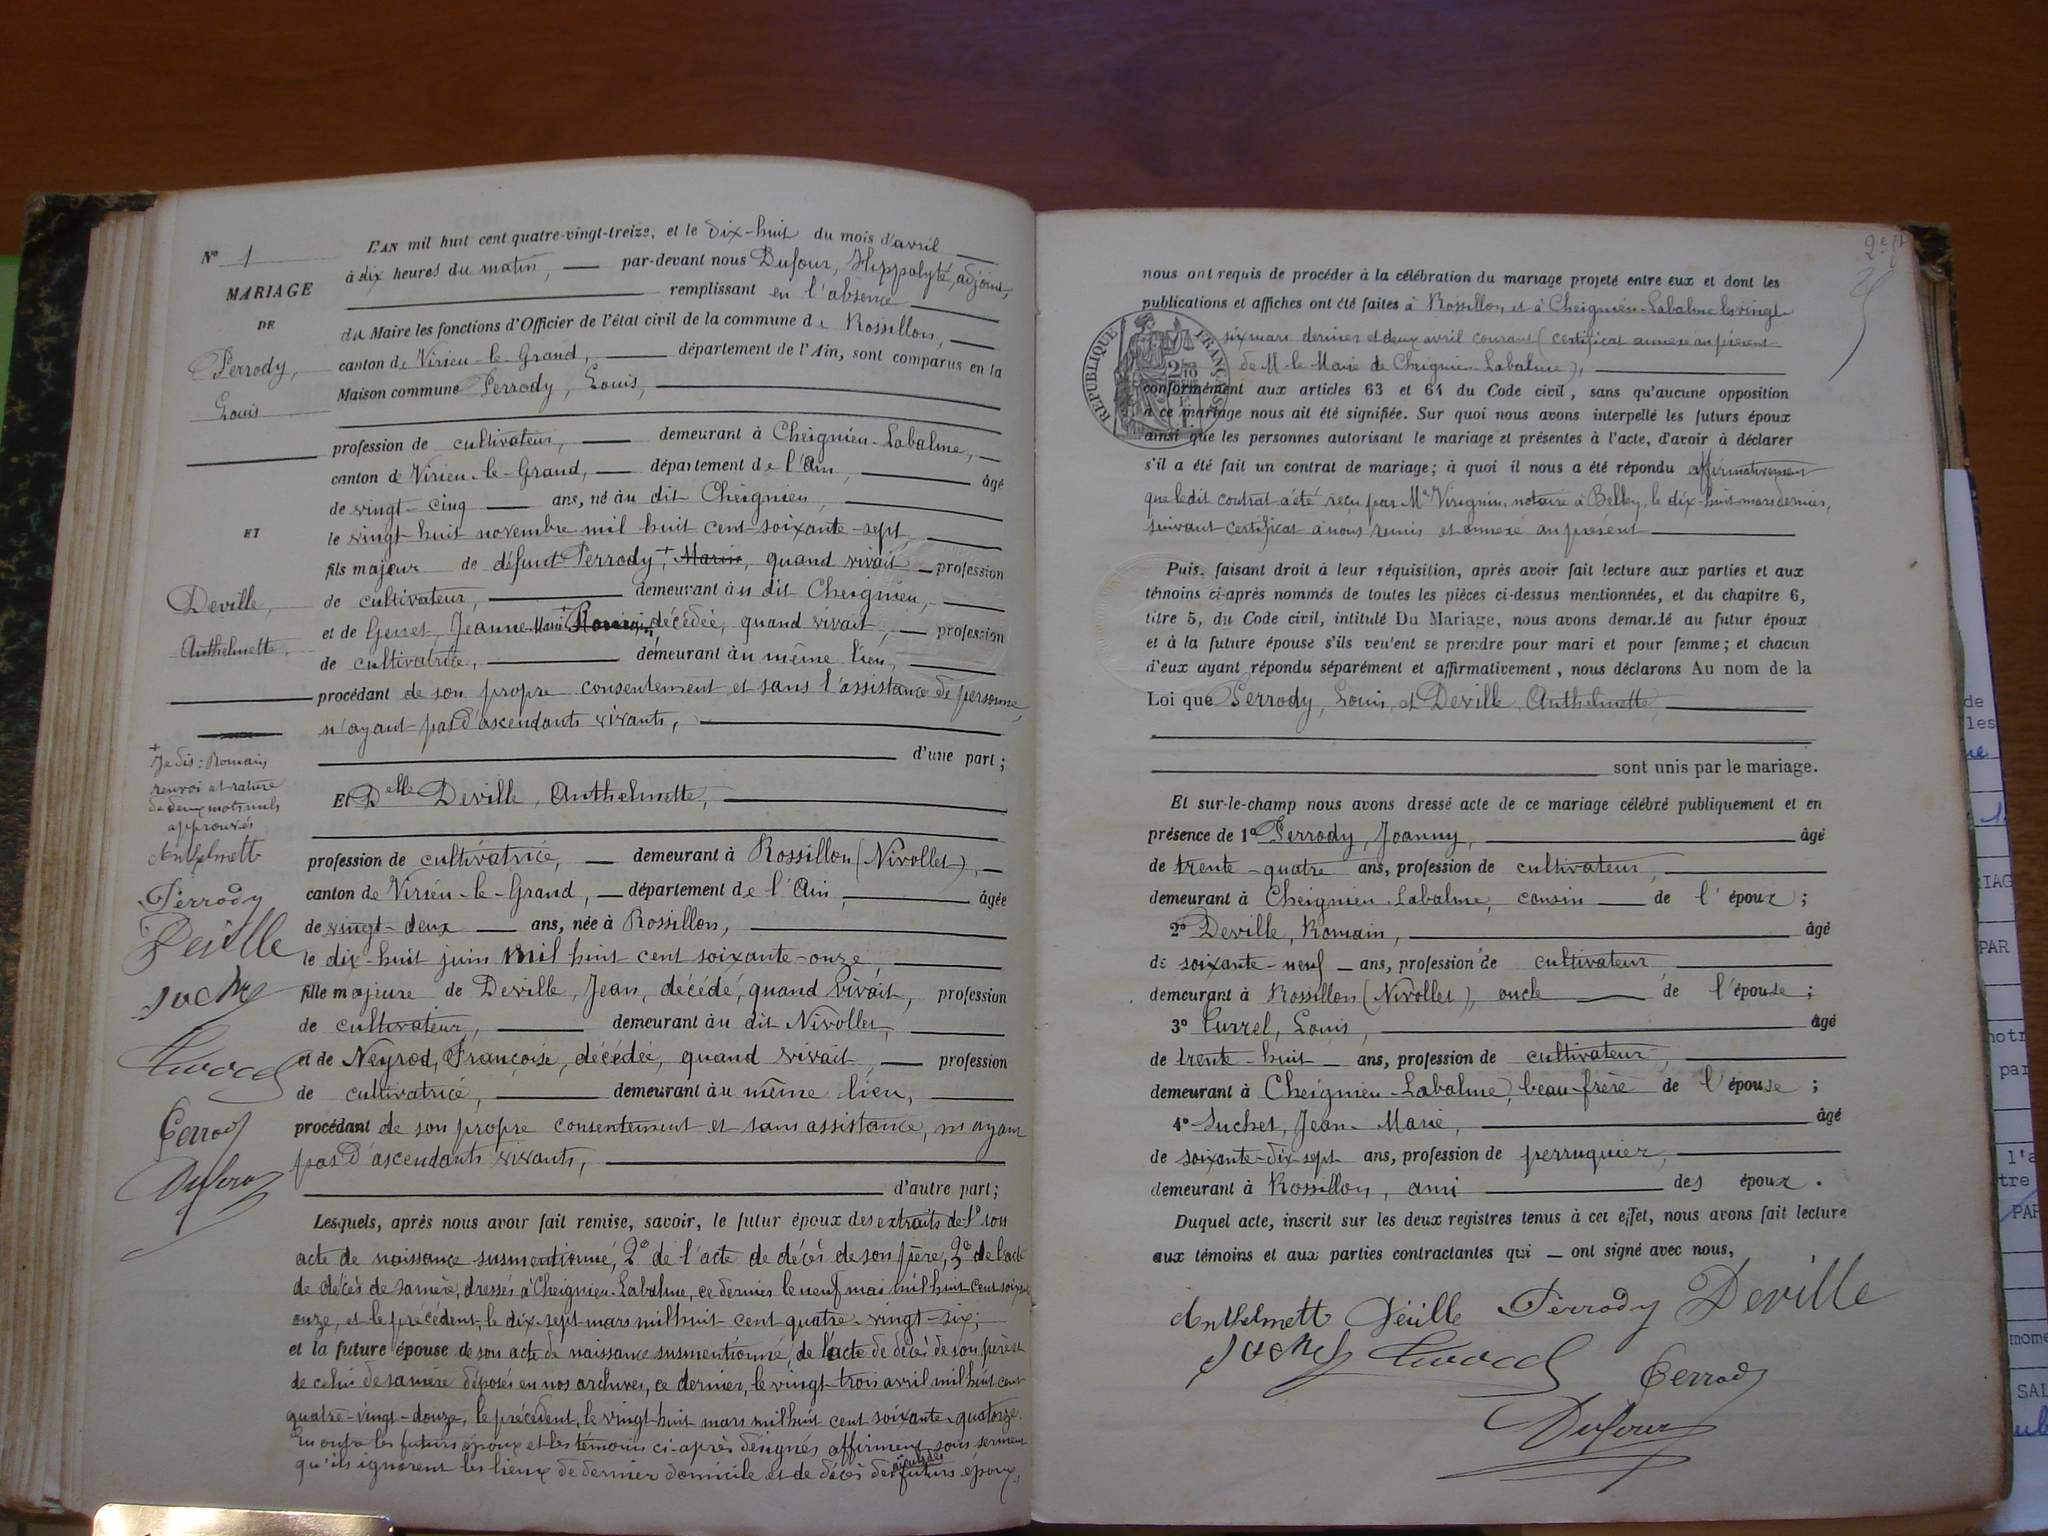 N° 1
MARIAGE
DE
Perrody,
Louis
ET
Deville,
Anthelmette,
+ Je dis : Romain,
renvoi et rature
de deux mots nuls
approuvés
Anthelmett
Perrody
Deville
Suchet
Perrod
Dufour
L'AN mil huit cent quatre-vingt-treize, et le dix-huit du mois d'avril
à dix heures du matin, par-devant nous Dufour, Hippolyte, adjoint,
remplissant en l'absence
du Maire les fonctions d'Officier de l'état civil de la commune de Rossillon,
canton de Virieu-le-Grand, département de l'Ain, sont comparus en la
Maison commune Perrody, Louis,
profession de cultivateur, demeurant à Cheignieu-Labalme,
canton de Virieu-le-Grand, département de l'Ain, âgé
de vingt-cinq ans, né à u dit Cheignieu,
le vingt-huit novembre mil huit cent soixante-sept,
fils majeur de défunt Perrody, + Marie, quand vivait profession
de cultivateur, demeurant à u dit Cheignieu,
et de Genet, Jeanne-Marie décédée, quand vivait, profession
de cultivatrice, demeurant à u même lieu,
procédant de son propre consentement et sans l'assistance de personne,
n'ayant pas d'ascendants vivants,
d'une part ;
Et Delle Deville, Anthelmette,
profession de cultivatrice, demeurant à Rossillon (Nivollet),
canton de Virieu-le-Grand, département de l'Ain, âgée
de vingt-deux ans, née à Rossillon,
le dix-huit juin mil huit cent soixante-onze,
fille majeure de Deville, Jean, décédé, quand vivait, profession
de cultivateur, demeurant à u dit Nivollet,
et de Neyrod, Françoise, décédée, quand vivait, profession
de cultivatrice, demeurant à u même lieu,
procédant de son propre consentement et sans assistance, n'ayant
pas d'ascendants vivants,
d'autre part ;
Lesquels, après nous avoir fait remise, savoir, le futur époux des extraits de 1° son
acte de naissance susmentionné, 2° de l'acte de décès de son père, 3° de l'acte
de décès de sa mère, dressés à Cheignieu-Labalme, ce dernier le neuf mai mil huit cent soixante
onze, et le précédent, le dix-sept mars mil huit cent quatre-vingt-six;
et la future épouse de son acte de naissance susmentionné, de l'acte de décès de son père et
de celui de sa mère déposés en nos archives, ce dernier, le vingt-trois avril mil huit cent
quatre-vingt-douze, le précédent, le vingt-huit mars mil huit cent soixante-quatorze.
En outre les futurs époux et les témoins ci-après désignés affirment sous serment
qu'ils ignorent les lieux de dernier domicile et de décès des aïeuls des futurs époux,
2e ft
nous ont requis de procéder à la célébration du mariage projeté entre eux et dont les
publications et affiches ont été faites à Rossillon et à Cheignieu-Labalme les vingt-
six mars dernier et deux avril courant (certificat annexé au présent
de M. le Maire de Cheignieu-Labalme),
RÉPUBLIQUE FRANÇAISE
conformément aux articles 63 et 64 du Code civil, sans qu'aucune opposition
à ce mariage nous ait été signifiée. Sur quoi nous avons interpellé les futurs époux
ainsi que les personnes autorisant le mariage et présentes à l'acte, d'avoir à déclarer
s'il a été fait un contrat de mariage ; à quoi il nous a été répondu affirmativement
que ledit contrat a été reçu par Me Virugnin, notaire à Belley, le dix-huit mars dernier,
suivant certificat à nous remis et annexé au présent
Puis, faisant droit à leur réquisition, après avoir fait lecture aux parties et aux
témoins ci-après nommés de toutes les pièces ci-dessus mentionnées, et du chapitre 6,
titre 5, du Code civil, intitulé Du Mariage, nous avons demandé au futur époux
et à la future épouse s'ils veulent se prendre pour mari et pour femme ; et chacun
d'eux ayant répondu séparément et affirmativement, nous déclarons Au nom de la
Loi que Perrody, Louis, et Deville, Anthelmette
sont unis par le mariage.
Et sur-le-champ nous avons dressé acte de ce mariage célébré publiquement et en
présence de 1° Perrody, Joanny, âgé
de trente-quatre ans, profession de cultivateur,
demeurant à Cheignieu-Labalme, cousin de l'époux ;
2° Deville, Romain, âgé
de soixante-neuf ans, profession de cultivateur
demeurant à Rossillon (Nivollet), oncle de l'épouse ;
3° Curret, Louis, âgé
de trente-huit ans, profession de cultivateur,
demeurant à Cheignieu-Labalme, beau-frère de l'épouse ;
4° Suchet, Jean-Marie, âgé
de soixante-dix-sept ans, profession de perruquier,
demeurant à Rossillon, ami des époux.
Duquel acte, inscrit sur les deux registres tenus à cet effet, nous avons fait lecture
aux témoins et aux parties contractantes qui ont signé avec nous,
Anthelmett Deville Perrody Deville
Suchet
Perrod
Dufour